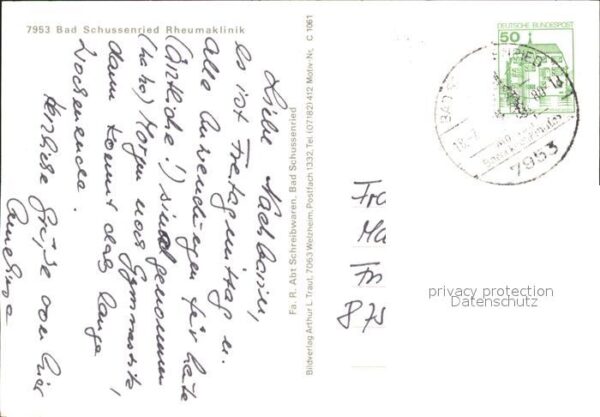 7953 Bad Schussenried Rheumaklinik
Liebe Nachbarin,
es ist Freitagmittag u.
alle Anwendungen für heute
(ärztliche!) sind genommen
(ha ha) Morgen noch Gymnastik,
dann kommt das lange
Wochenende.
Herzliche Grüße von Ihrer
Bildverlag Arthur L. Traut, 7063 Welzheim, Postfach 1332, Tel. (07182) 412 Motiv-Nr. C 1061
Fa. R. Abt Schreibwaren, Bad Schussenried
DEUTSCHE BUNDESPOST
50
BAD
7953
Fra
Ma
875
privacy protection
Datenschutz